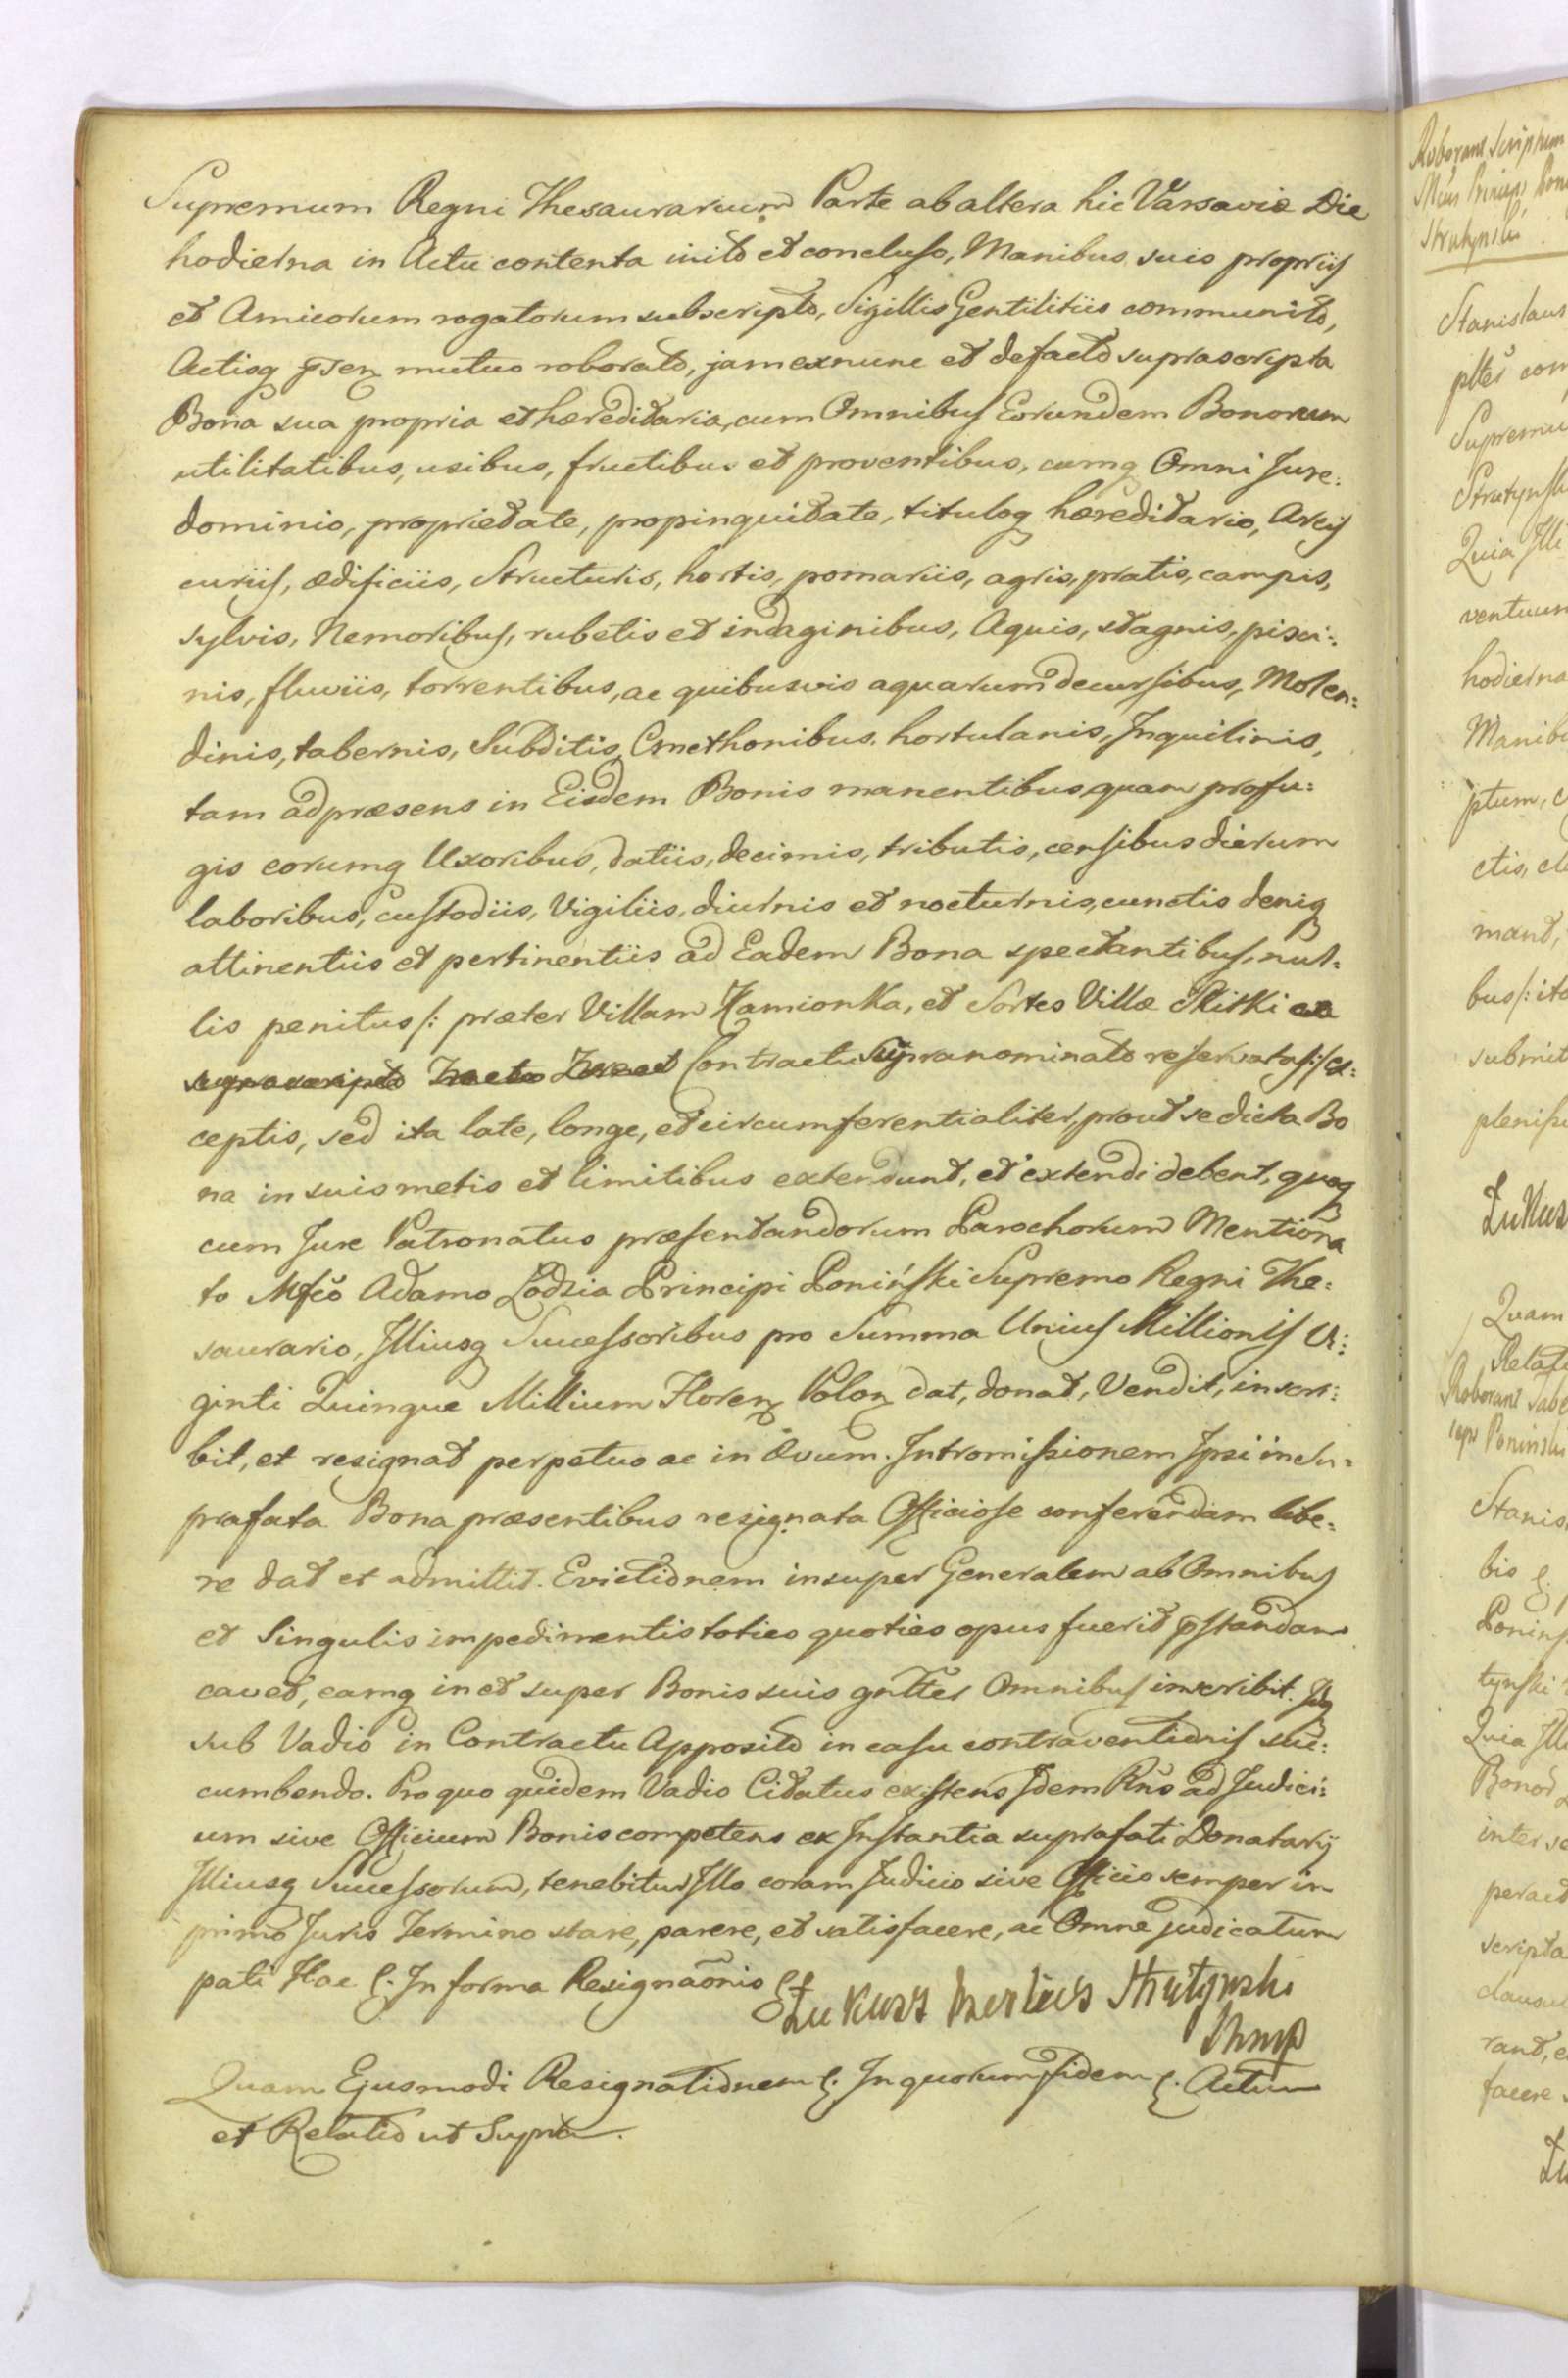 Supremum Regni Thesaurarium Parte ab altera hic Varsaviæ Die
hodierna in Actu contenta inito et concluso, Manibus suis propriis
et Amicorum rogatorum subscripto, Sigillis Gentilitiis communito,
Actisq pñsen mutuo roborato, jam exnunc et defacto suprascripta
Bona sua propria et hæreditaria, cum Omnibus Eorundem Bonorum
utilitatibus, usibus, fructibus et proventibus, cumq Omni Jure:
dominio, proprietate, propinquitate, tituloq hæreditario, Areis
curiis, ædificiis, Structuris, hortis, pomariis, agris, pratis, campis,
sylvis, Nemoribus, rubetis et indaginibus, Aquis, stagnis, pisci:
nis, fluviis, torrentibus, ac quibusvis aquarum decursibus, Molen:
dinis, tabernis, Subditis, Cmethonibus, hortulanis, Inquilinis,
tam ad præsens in Eisdem Bonis manentibus, quam profu:
gis eorumq Uxoribus, datiis, decimis, tributis, censibus dierum
laboribus, custodiis, Vigiliis, diurnis et nocturnis, cunctis deniq
attinentiis et pertinentiis ad Eadem Bona spectantibus, nul:
lis penitus /: præter Villam Kamionka, et Sortes Villæ Skitki
suprascripto Contractu Supranominato reservatas :/ ex:
ceptis, sed ita late, longe, et circumferentialiter, prout se dicta Bo
na in suis metis et limitibus extendunt, et extendi debent, quæq
cum Jure Patronatus præsentandorum Parochorum Mentiona
to Mfco Adamo Łodzia Principi Poniński Supremo Regni The:
saurario, Illiusq Successoribus pro Summa Unius Millionis Vi:
ginti Quinque Millium Floren Polon dat, donat, Vendit, inscri:
bit, et resignat perpetuo ac in Ævum. Intromissionem Ipsi in Su:
prafata Bona præsentibus resignata Officiose conferendam libe:
re dat et admittit. Evictionem insuper Generalem ab Omnibus
et Singulis impedimentis toties quoties opus fuerit pstandam
cavet, eamq in et super Bonis suis gnłter Omnibus inscribit. Idq
sub Vadio in Contractu Apposito in casu contraventionis suc:
cumbendo. Pro quo quidem Vadio Citatus existens Idem Rns ad Judici:
um sive Officium Bonis competens ex Instantia suprafati Donatarij
Illiusq Successorum, tenebitur Illo coram Judicio sive Officio semper in
primo Juris Termino stare, parere, et satisfacere, ac Omne judicatum
pati Hac &. In forma Resignaõnis &
Łukasz Strutynski
Quam Ejusmodi Resignationem &. In quorum fidem &. Actum
et Relatio ut Supra.
Roborant Scriptum
Strutynski
Stanislaus
plter com
Supremu
Strutynsk
Quia Ille
ventuum
hodierna
Manibu
ptum, c
ctis, cl
mand,
bus /: ita
submit
plenissi
Łukasz
Quam
Relati
Roborant
Poninski
Stanis
bis &
Ponins
tynski
Quia Ille
Bonor
inter se
peract
scripta
clausul
rand, e
facere
Łu